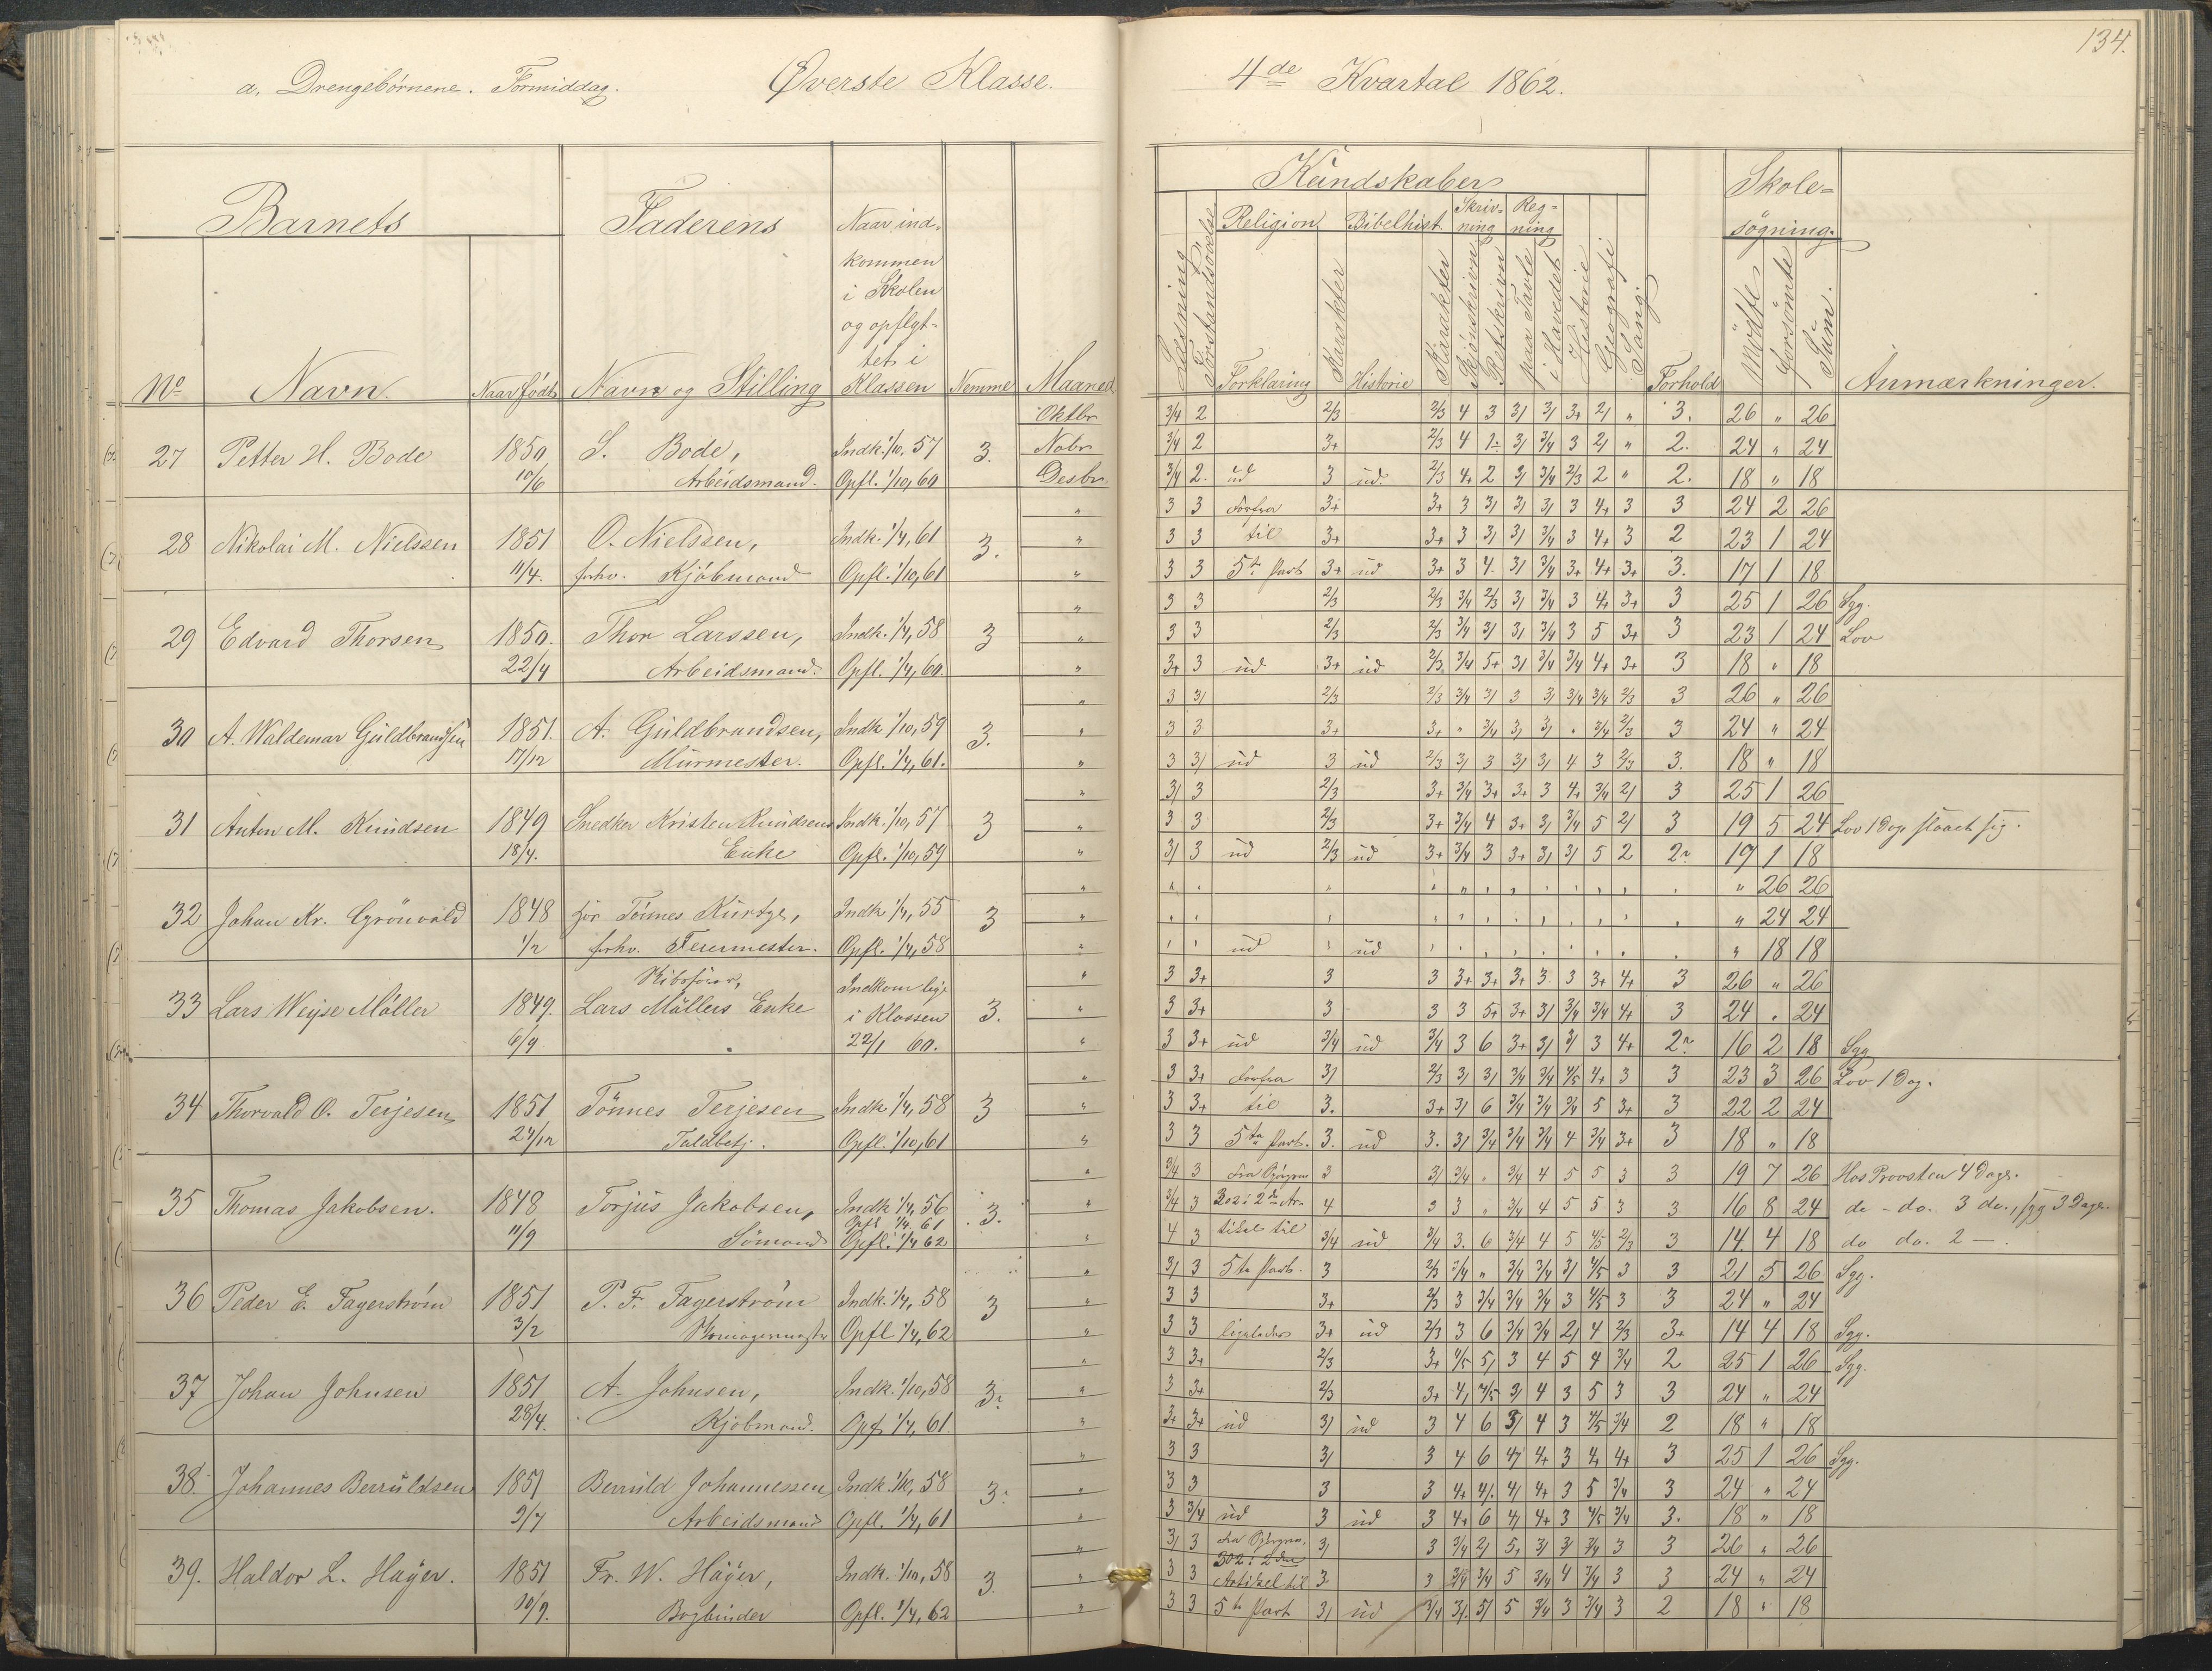 134.
a. Drengebørnene. Formiddag. Øverste Klasse. 4de Kvartal 1862.
Barnets Faderens Naar ind- Kundskaber Skole-
kommen Religion Bibelhist. Skriv- Reg- søgning.
i Skolen ning ning
og opflyt-
tet i
No Navn. Naar født Navn og Stilling Klassen Nemme Maaned Læsning Forstandsøvelse Forklaring Karakter Historie Karakter Skjønskriven Retskrivn paa Tavle i Hovedet Historie Geografi Sang Forhold Mødte Forsømte Sum. Anmærkninger.
Oktbr 3/4 2 2/3 2/3 4 3 3/ 3/ 3+ 2/ " 3. 26 " 26
27 Petter H. Bode 1850 S. Bode, Indk. 1/10, 57 3. Nobr 3/4 2 3+ 2/3 4 1- 3/ 3/4 3 2/ " 2. 24 " 24
10/6 Arbeidsmand. Opfl. 1/10, 60 Desbr 3/4 2. ud 3 ud. 2/3 4+ 2 3/ 3/4 2/3 2 " 2. 18 " 18
" 3 3 Forfra 3+ 3+ 3 3/ 3/ 3/ 3 4+ 3 3 24 2 26
28 Nikolai M. Nielssen 1851 O. Nielssen, Indk. 1/4, 61 3. " 3 3 til 3+ 3+ 3 3/ 3/ 3/4 3 4+ 3 2 23 1 24
11/4. forhv. Kjøbmand Opfl. 1/10, 61 " 3 3 5te Part 3+ ud 3+ 3 4 3/ 3/4 3+ 4+ 3+ 3. 17 1 18
" 3 3 2/3 2/3 3/4 2/3 3/ 3/4 3 4+ 3+ 3 25 1 26 Syg.
29 Edvard Thorsen 1850. Thor Larssen, Indk. 1/4, 58 3 " 3 3 2/3 2/3 3/4 3/ 3/ 3/4 3 5 3+ 3 23 1 24 Lov
22/4 Arbeidsmand. Opfl. 1/4, 60. " 3+ 3 ud 3+ ud 2/3 3/4 5+ 3/ 3/4 3/4 4+ 3+ 3 18 " 18
" 3 3/ 2/3 2/3 3/4 3/ 3 3/ 3/4 3/4 2/3 3 26 " 26
30 A. Waldemar Guldbrandsen 1851. A. Guldbrandsen, Indk 1/10, 59 3. " 3 3 3+ 3+ " 3/4 3/ 3/ " 3/4 2/3 3 24 " 24
17/12 Murmester. Opfl. 1/4, 61. " 3 3/ ud 3 ud 2/3 3/ 3 3/ 3/ 4 3 2/3 3. 18 " 18
" 3/ 3 2/3 3+ 3/4 3+ 3+ 3 4+ 3/4 2/ 3 25 1 26
31 Anton M. Knudsen 1849 Snedker Kristen Knudsens Indk. 1/10, 57 3 " 3 3 2/3 3+ 3/4 4 3+ 3/ 3/4 5 2/ 3 19 5 24 Lov 1 Dag slaaet sig.
18/4. Enke Opfl. 1/10, 59 " 3/ 3 ud 2/3 ud 3+ 3/4 3 3+ 3/ 3/ 5 2 2? 17 1 18
" " 26 26
32 Johan Kr. Grönvold 1848 for Tönnes Kurtze, Indk 1/4, 55 3 " " 24 24
1/2 forhv. Feiermester. Opfl. 1/4, 58 " ud ud " 18 18
Skibsfører, " 3 3+ 3 3 3+ 3+ 3+ 3 3 3+ 4+ 3 26 " 26
33 Lars Weyse Möller 1849. Lars Möllers Enke Indkom lige i Klassen 3. " 3 3+ 3 3 3 5+ 3+ 3/ 3/4 3/4 4+ 3 24 " 24
6/9 22/1 60. " 3 3+ ud 3/4 ud 3/4 3 6 3+ 3/ 3/ 3 4+ 2? 16 2 18 Syg
" 3 3+ Forfra 3/ 2/3 3/ 3/ 3/4 3/4 4/5 4+ 3 3 23 3 26 Lov 1 Dag.
34 Thorvald O. Terjesen 1851 Tönnes Terjesen Indk 1/4, 58 3 " 3 3+ til 3. 3+ 3/ 6 3/4 3/4 3/4 5 3+ 3 22 2 24
24/12 Toldbetj. Opfl. 1/10, 61 " 3 3 5te Part. 3. ud 3. 3/ 3/4 3/4 3/4 4 3/4 3+ 3 18 " 18
" 3/4 3 3 3/ 3/4 " 3/4 4 5 5 3 3 19 7 26 Hos Provsten 4 Dage.
35 Thomas Jakobsen. 1848 Torjus Jakobsen, Indk 1/4, 56 Opfl 1/4, 61 3. " 3/4 3 302 i 2de Ar- 4 3 3 " 3/4 4 5 5 3 3 16 8 24 do - do. 3 do., syg 3 Dage.
11/9 Sömand Opfl. 1/4 62 " 4 3 tikel til 3/4 ud 3/4 3. 6 3/4 4 5 4/5 2/3 3 14 4 18 do do. 2 -.
" 3/ 3 5te Part. 3 2/3 3/4 " 3/4 3/4 3/ 4/5 3 3 21 5 26 Syg.
36 Peder E. Fagerström 1851 P. F. Fagerström Indk. 1/4, 58 3 " 3 3 3+ 2/3 3 3/4 3/4 3/4 3 4/5 3 3 24 " 24
3/2 Skomagermester Opfl 1/4, 62 " 3 3 ligeledes 3+ ud 2/3 3 6 3/4 3/4 2/ 4 2/3 3+ 14 4 18 Syg.
" 3 3+ 2/3 3+ 4/5 5/ 3 4 5 4 3/4 2 25 1 26 Syg.
37 Johan Johnsen 1851 A. Johnsen, Indk. 1/10, 58 3? " 3 3+ 2/3 3+ 4/ 4/5 3/ 4 3 5 3 3 24 " 24
28/4. Kjøbmand. Opf 1/4, 61. " 3+ 3+ ud 3/ ud 3 4 6 3/ 4 3 4/5 3/4 2 18 " 18
" 3 3 3/ 3 4 6 4/ 4+ 3 4+ 4+ 3 25 1 26 Syg.
38. Johannes Berruldsen 1851 Berruld Johannessen Indk. 1/10, 58 3? " 3 3 3 3 4+ 4/. 4/ 4+ 3 5 3/4 3 24 " 24
9/7 Arbeidsmand Opfl. 1/4, 61 " 3 3/4 ud 3 ud 3 4+ 6 4/ 4+ 3 4/5 3/4 3. 18 " 18
" 3/ 3 3/ 3 3/4 2/ 5+ 3/ 3/ 3/4 3 3 26 " 26
39. Haldor L. Häyer. 1851 Fr. W. Häyer, Indk. 1/10, 58 3. " 3 3 302 i 2den Artikel til 3 3 3/4 3/4 5 3/4 4 3/4 3 3 24 " 24
10/9. Bogbinder Opfl. 1/4, 62 " 3 3 5te Part 3/ ud 3/4 3/. 5/ 5 3/4 3 3/4 3 2 18 " 18